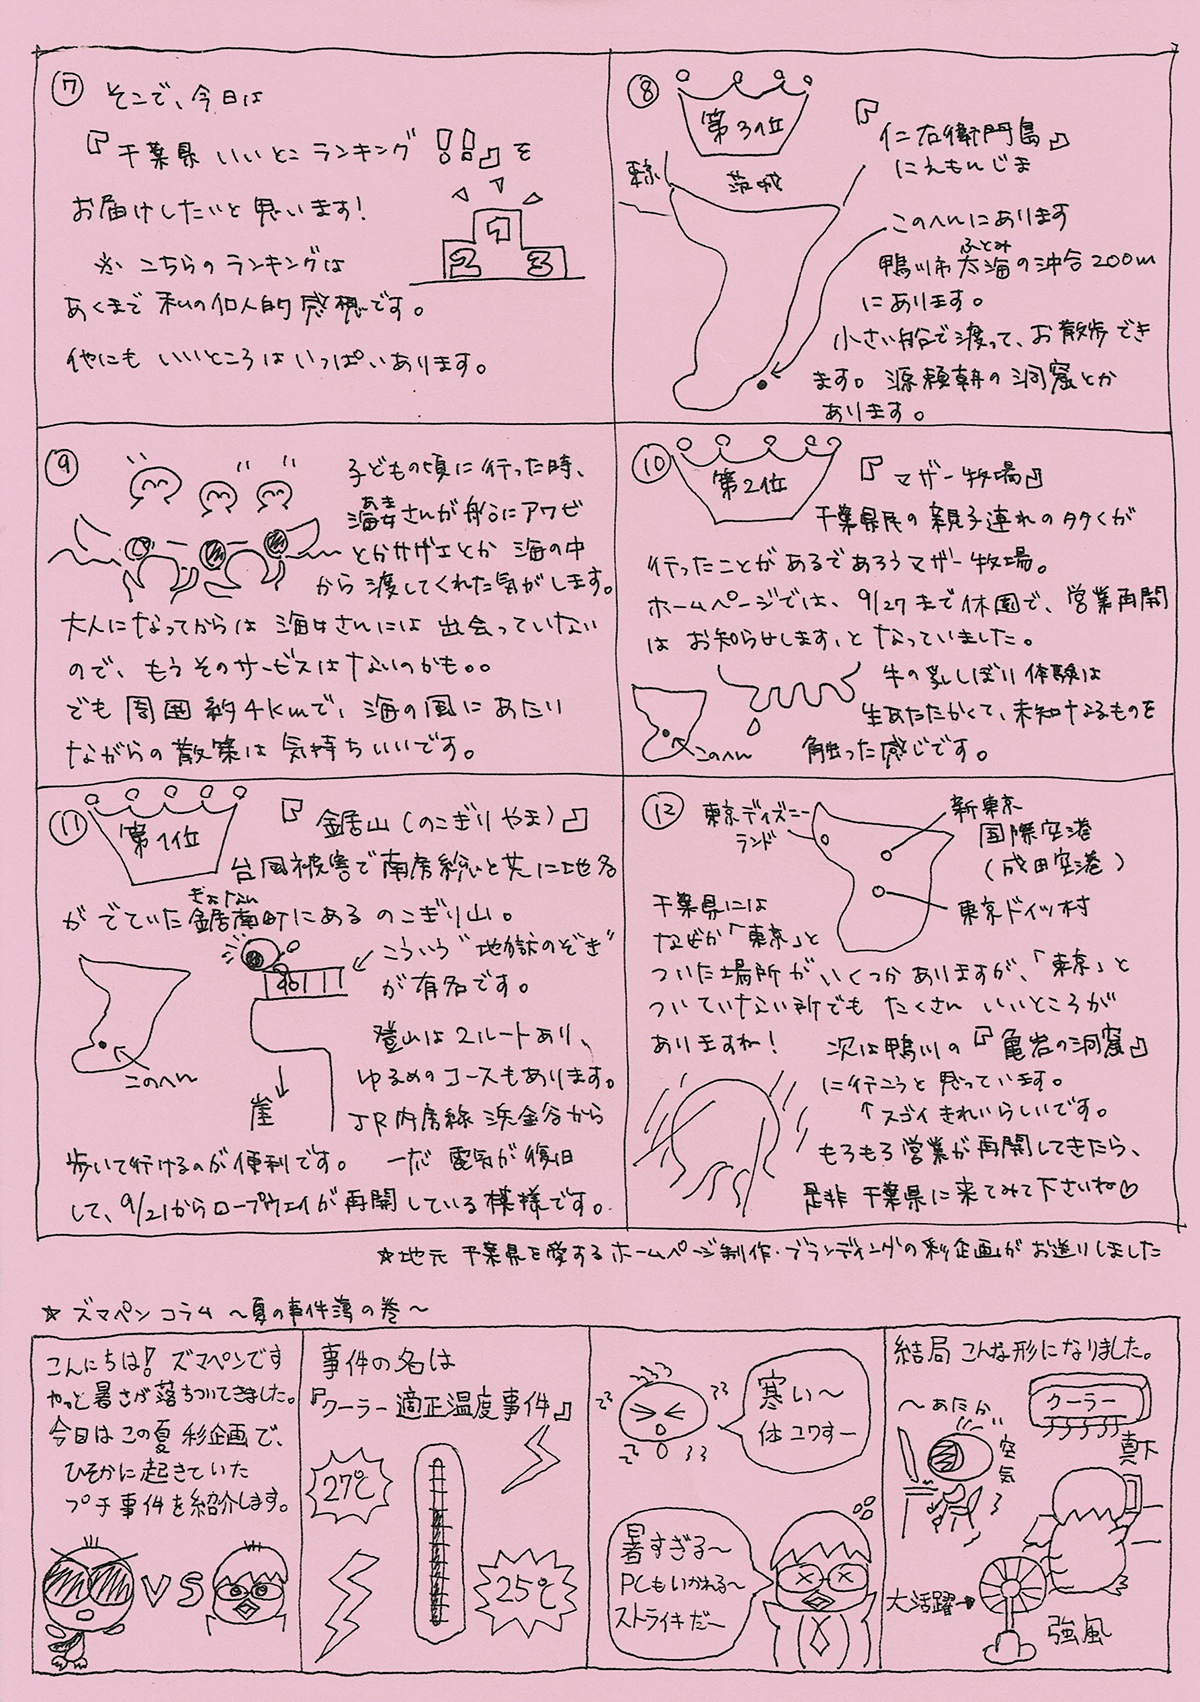 ⑦ そこで、今日は
『千葉県 いいとこ ランキング!!』を
お届けしたいと思います!
※ こちらのランキングは
あくまで 私の個人的感想です。
他にも いいところは いっぱいあります。
1
2 3
⑧ 第3位
『仁右衛門島』
にえもんじま
東京
茨城
このへんにあります
ふとみ
鴨川市 太海の沖合200m
にあります。
小さい船で渡って、お散歩でき
ます。源頼朝の洞窟とか
あります。
⑨ 子どもの頃に行った時、
あま
海女さんが船にアワビ
とかサザエとか 海の中
から渡してくれた気がします。
大人になってからは 海女さんには 出会っていない
ので、もうそのサービスはないのかも。。
でも 周囲 約4kmで、海の風にあたり
ながらの散策は 気持ちいいです。
⑩ 第2位
『マザー牧場』
千葉県民の 親子連れの多くが
行ったことがあるであろうマザー牧場。
ホームページでは、9/27まで休園で、営業再開
は お知らせします、と なっていました。
牛の乳しぼり体験は
生あたたかくて、未知なるものを
触った感じです。
このへん
⑪ 第1位
『鋸山(のこぎりやま)』
台風被害で南房総と共に地名
きょなん
が でていた鋸南町にある のこぎり山。
こういう"地獄のぞき"
が有名です。
登山は 2ルートあり、
ゆるめのコースもあります。
このへん
崖
JR内房線 浜金谷から
歩いて行けるのが便利です。 一応 電気が復旧
して、9/21からロープウェイが再開している模様です。
⑫ 東京ディズニー
ランド
新東京
国際空港
(成田空港)
東京ドイツ村
千葉県には
なぜか「東京」と
ついた場所がいくつかありますが、「東京」と
ついていない所でも たくさん いいところが
ありますね!
次は鴨川の『亀岩の洞窟』
に行こうと思っています。
↑スゴイ きれいらしいです。
もろもろ営業が再開してきたら、
是非 千葉県に来てみて下さいね♡
☆地元 千葉県を愛するホームページ制作・ブランディングの彩企画がお送りしました
☆ ズマペンコラム 〜夏の事件簿の巻〜
こんにちは! ズマペンです
やっと暑さが落ちついてきました。
今日はこの夏 彩企画で、
ひそかに起きていた
プチ事件を紹介します。
VS
事件の名は
『クーラー適正温度事件』
27℃
25℃
寒い〜
体コワすー
暑すぎる〜
PCもいかれる〜
ストライキだー
結局こんな形になりました。
〜あたたか
空気
クーラー
真下
大活躍→
強風